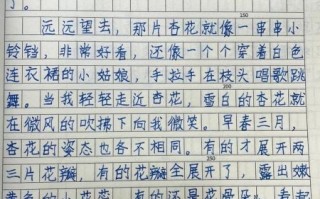 了。
远远望去，那片杏花就像一串串小
铃铛，非常好看，还像一个个穿着白色
连衣裙的小姑娘，手拉手在枝头唱歌跳
舞。当我轻轻走近杏花，雪白的杏花就
在微风的吹拂下向我微笑。早春三月，
杏花的姿态也各不相同。有的才展开两
三片花瓣，有的花瓣全展开了，露出嫩
黄色的小花蕊，有的还是花骨朵，看起